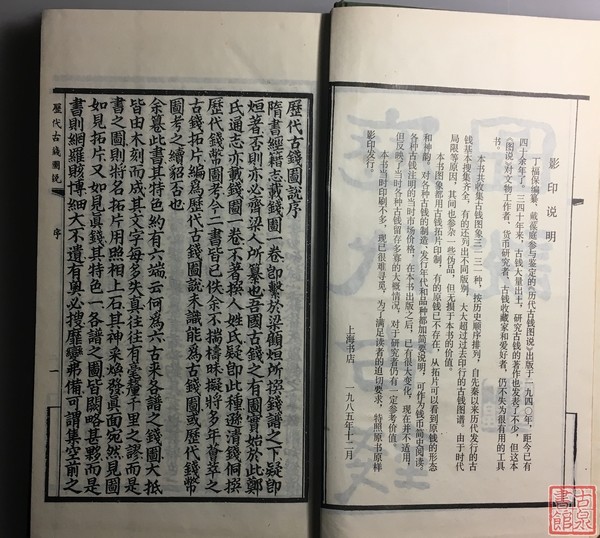 影印说明
丁福保编纂、戴葆庭参与鉴定的《历代古钱图说》出版于一九四〇年，距今已有
四十余年了。三四十年来，古钱大量出土，研究古钱的著作也发表了不少，但这本
《图说》对文物工作者、货币研究者、古钱收藏家和爱好者，仍不失为很有用的工具
书。
本书共收集古钱图象三一三一种，按历史顺序排列，自先秦以来历代发行的古
钱基本搜集齐全，有的还列出不同版别，大大超过过去印行的古钱图谱。由于时代
局限等原因，其间也参杂一些伪品，但无损于本书的价值。
本书图象都用古钱拓片印制，有的原钱已不存在，从拓片可以看到原钱的形态
和神韵，对各种古钱的制造、发行年代和品种都加简要说明，可作为钱币简史阅读；
各种古钱注明的当时市场价格，在本书出版之后，已有很大变化，现在并不适用，
但反映了当时各种古钱留存多寡的大概情况，对于研究者仍有一定参考价值。
本书当时印刷不多，现已很难寻觅，为了满足读者的迫切要求，特照原书原样
影印发行。
上海书店 一九八五年十二月
歷代古錢圖說序
隋書經籍志載錢圖一卷卽繫於梁顧烜所撰錢譜之下疑卽
烜著否則亦必齊梁人所纂也吾國古錢之有圖實始於此鄭
氏通志亦載錢圖一卷不著撰人姓氏疑卽此種遜清錢侗撰
歷代錢幣圖考今二書皆已佚余不揣檮昧擬將多年薈萃之
古錢拓片編爲歷代古錢圖說未識能爲古錢圖或歷代錢幣
圖考之續貂否也
余纂此書其特色約有六端云何爲六古來各譜之錢圖大抵
皆由木刻而成其文字每多失真往往有毫釐千里之謬而是
書之圖則將名拓片用照相上石其神采煥發真面宛然見圖
如見拓片又如見真錢其特色一各譜之圖皆闕略甚夥而是
書則網羅賅博細大不遺有奧必搜靡孿弗備可謂集空前之
歷代古錢圖說 序 一
古泉書館